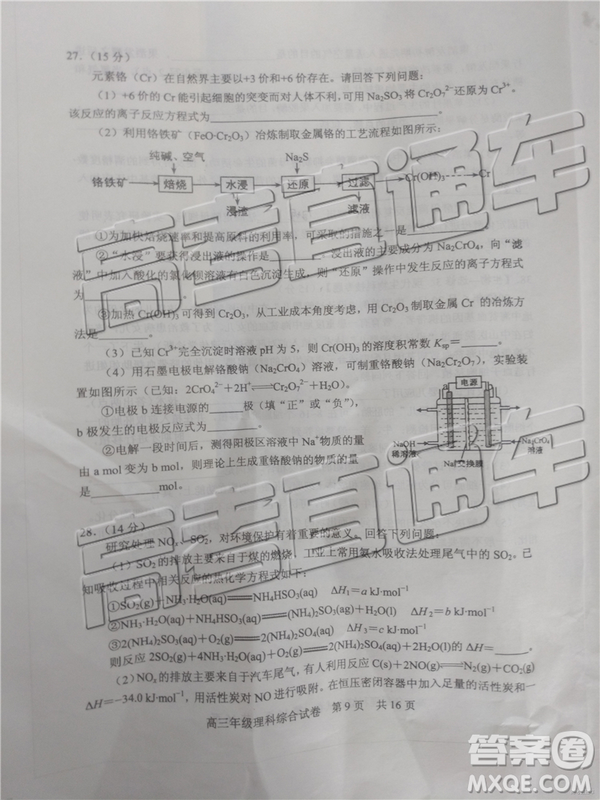 27.（15 分）
元素铬（Cr）在自然界主要以+3 价和+6 价存在。请回答下列问题：
（1）+6价的 Cr能引起细胞的突变而对人体不利，可用 Na₂SO₃ 将 Cr₂O₇²⁻还原为 Cr³⁺。
该反应的离子反应方程式为____________。
（2）利用铬铁矿（FeO·Cr₂O₃）冶炼制取金属铬的工艺流程如图所示：
纯碱、空气 Na₂S
铬铁矿 焙烧 水浸 还原 过滤 Cr(OH)₃ Cr
浸渣 滤液
①为加快焙烧速率和提高原料的利用率，可采取的措施之一是____________。
②“水浸”要获得浸出液的操作是____________。浸出液的主要成分为 Na₂CrO₄，向“滤
液”中加入酸化的氯化钡溶液有白色沉淀生成，则“还原”操作中发生反应的离子方程式
为____________。
③加热 Cr(OH)₃ 可得到 Cr₂O₃，从工业成本角度考虑，用 Cr₂O₃ 制取金属 Cr 的冶炼方
法是______。
（3）已知 Cr³⁺完全沉淀时溶液 pH 为 5，则 Cr(OH)₃ 的溶度积常数 Ksp＝______。
（4）用石墨电极电解铬酸钠（Na₂CrO₄）溶液，可制重铬酸钠（Na₂Cr₂O₇），实验装
置如图所示（已知：2CrO₄²⁻+2H⁺⇌Cr₂O₇²⁻+H₂O）。
①电极 b 连接电源的____极（填“正”或“负”），
b 极发生的电极反应式为______。
②电解一段时间后，测得阳极区溶液中 Na⁺物质的量
由 a mol 变为 b mol，则理论上生成重铬酸钠的物质的量
是________mol。
电源
NaOH
稀溶液
Na₂CrO₄
溶液
Na⁺交换膜
28.（14 分）
研究处理 NOₓ、SO₂，对环境保护有着重要的意义。回答下列问题：
（1）SO₂ 的排放主要来自于煤的燃烧，工业上常用氨水吸收法处理尾气中的 SO₂。已
知吸收过程中相关反应的热化学方程式如下：
①SO₂(g)+NH₃·H₂O(aq)═NH₄HSO₃(aq) ΔH₁＝a kJ·mol⁻¹
②NH₃·H₂O(aq)+NH₄HSO₃(aq)═(NH₄)₂SO₃(ag)+H₂O(l) ΔH₂＝b kJ·mol⁻¹
③2(NH₄)₂SO₃(aq)+O₂(g)═2(NH₄)₂SO₄(aq) ΔH₃＝c kJ·mol⁻¹
则反应 2SO₂(g)+4NH₃·H₂O(aq)+O₂(g)═2(NH₄)₂SO₄(aq)+2H₂O(l)的 ΔH＝______。
（2）NOₓ的排放主要来自于汽车尾气，有人利用反应 C(s)+2NO(g)⇌N₂(g)+CO₂(g)
ΔH＝−34.0 kJ·mol⁻¹，用活性炭对 NO 进行吸附。在恒压密闭容器中加入足量的活性炭和一
高三年级理科综合试卷 第 9 页 共 16 页
高考直通车
高考直通车
答案圈
MXQE.COM